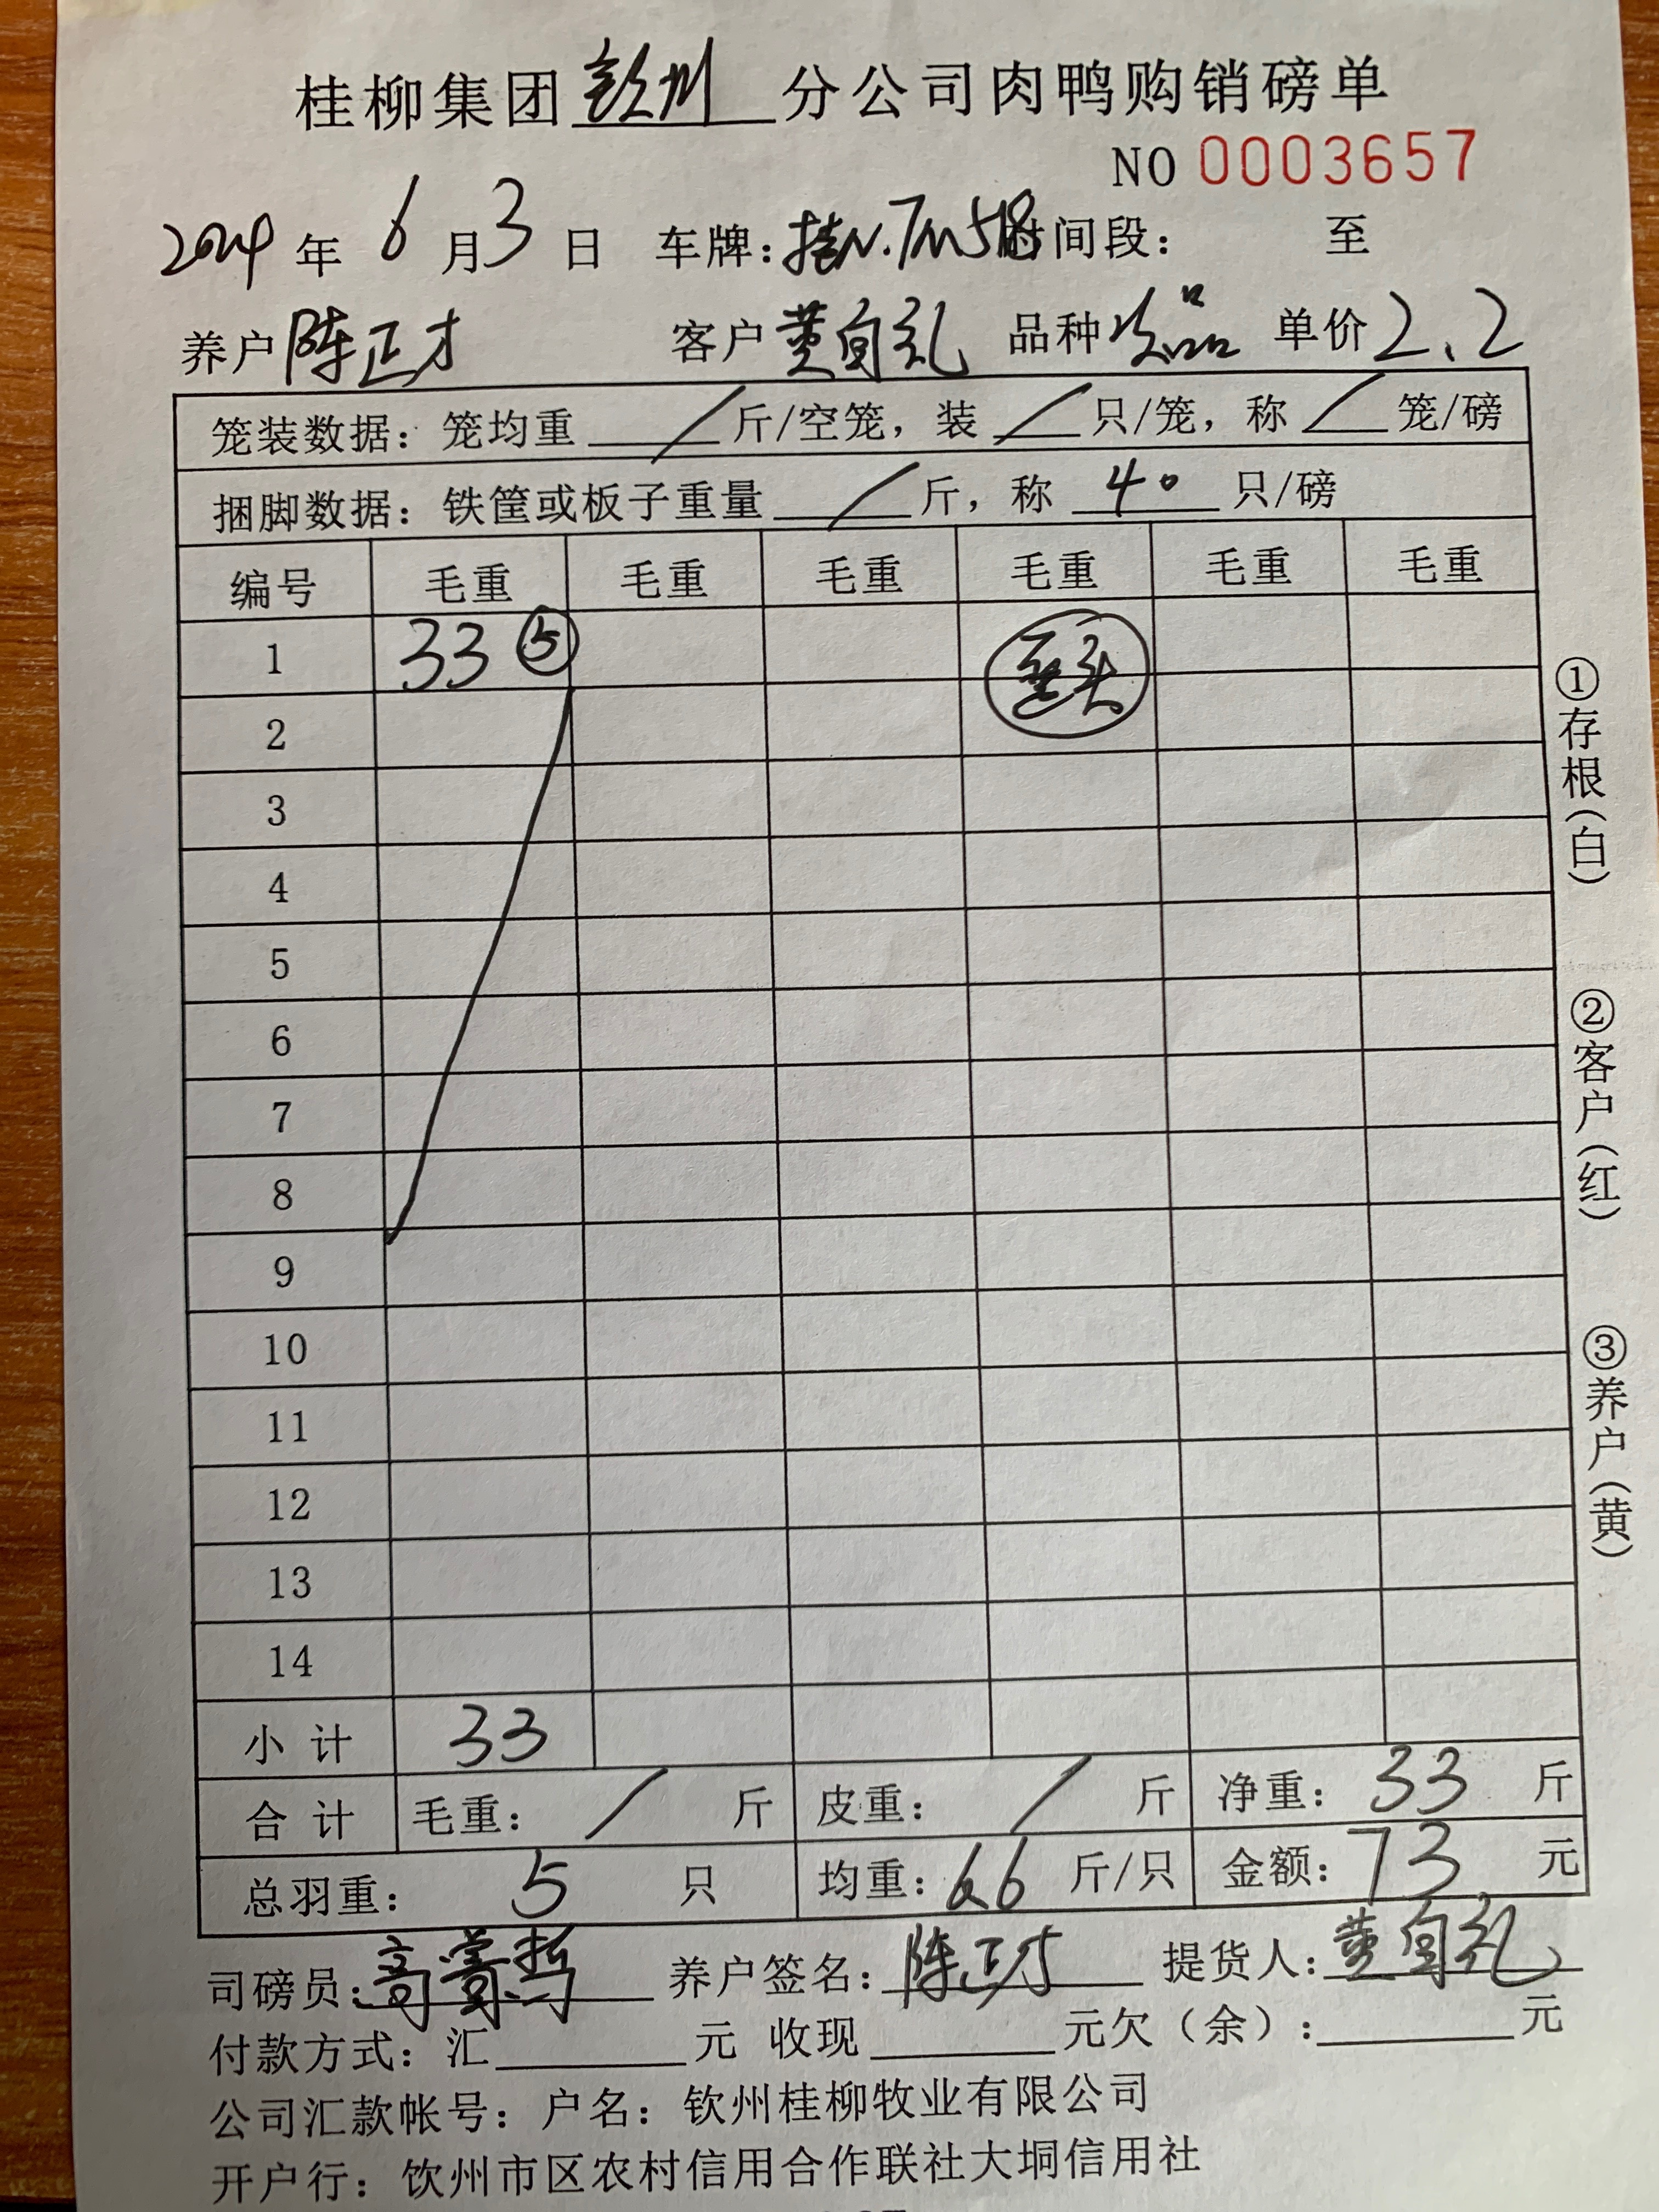 桂柳集团钦州分公司肉鸭购销磅单
NO 0003657
2024年6月3日 车牌：桂N.7m518时间段： 至
养户陈正才 客户黄自礼 品种次品 单价2.2
笼装数据：笼均重/斤/空笼，装/只/笼，称/笼/磅
捆脚数据：铁筐或板子重量/斤，称40只/磅
编号 毛重 毛重 毛重 毛重 毛重 毛重
1 33 ⑤
2
3
4
5
6
7
8
9
10
11
12
13
14
小计 33
合计 毛重：/斤 皮重：/斤 净重：33斤
总羽重：5只 均重：6.6斤/只 金额：73元
司磅员： 养户签名：陈正才 提货人：黄自礼
付款方式：汇____元 收现____元欠（余）：____元
公司汇款帐号：户名：钦州桂柳牧业有限公司
开户行：钦州市区农村信用合作联社大垌信用社
①存根（白）
②客户（红）
③养户（黄）